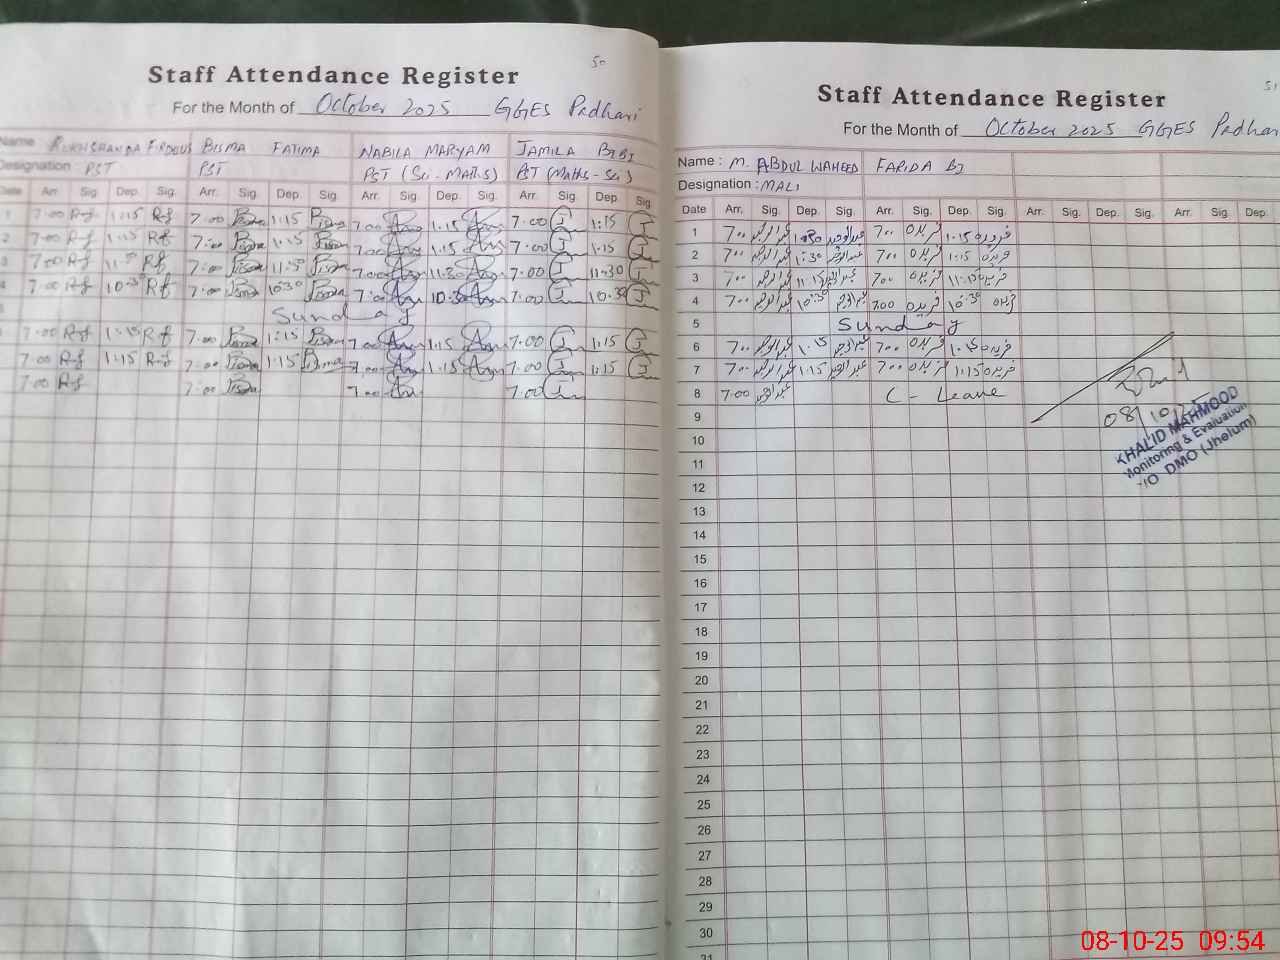 50
Staff Attendance Register
For the Month of October 2025 GGES Padhari
Name RUKHSHANDA FIRDOUS BISMA FATIMA NABILA MARYAM JAMILA BIBI
Designation PST PST PST (Sci-Maths) PST (Maths-Sci)
Date Arr. Sig. Dep. Sig. Arr. Sig. Dep. Sig. Arr. Sig. Dep. Sig. Arr. Sig. Dep. Sig.
1 7:00 Rf 1:15 Rf 7:00 1:15 7:00 1:15 7:00 J 1:15 J
2 7:00 Rf 1:15 Rf 7:00 1:15 7:00 1:15 7:00 J 1:15 J
3 7:00 Rf 11:30 Rf 7:00 11:30 7:00 11:30 7:00 J 11:30 J
4 7:00 Rf 10:30 Rf 7:00 10:30 7:00 10:30 7:00 J 10:30 J
Sunday
7:00 Rf 1:15 Rf 7:00 1:15 7:00 1:15 7:00 J 1:15 J
7:00 Rf 1:15 Rf 7:00 1:15 7:00 1:15 7:00 J 1:15 J
7:00 Rf 7:00 7:00 7:00
51
Staff Attendance Register
For the Month of October 2025 GGES Padhari
Name : M. ABDUL WAHEED FARIDA BI
Designation : MALI
Date Arr. Sig. Dep. Sig. Arr. Sig. Dep. Sig. Arr. Sig. Dep. Sig. Arr. Sig. Dep.
1 7:00 عبدالوحید عبدالوحید 7:00 فریدہ 1:15 فریدہ
2 7:00 عبدالوحید 1:30 عبدالوحید 7:00 فریدہ 1:15 فریدہ
3 7:00 عبدالوحید 11:15 عبدالوحید 7:00 فریدہ 11:15 فریدہ
4 7:00 عبدالوحید 10:30 عبدالوحید 7:00 فریدہ 10:30 فریدہ
5 Sunday
6 7:00 عبدالوحید 1:15 عبدالوحید 7:00 فریدہ 1:15 فریدہ
7 7:00 عبدالوحید 1:15 عبدالوحید 7:00 فریدہ 1:15 فریدہ
8 7:00 عبدالوحید C - Leave
08/10/25
9
KHALID MAHMOOD
10
Monitoring & Evaluation
11
DMO (Jhelum)
12
13
14
15
16
17
18
19
20
21
22
23
24
25
26
27
28
29
30
31
08-10-25 09:54